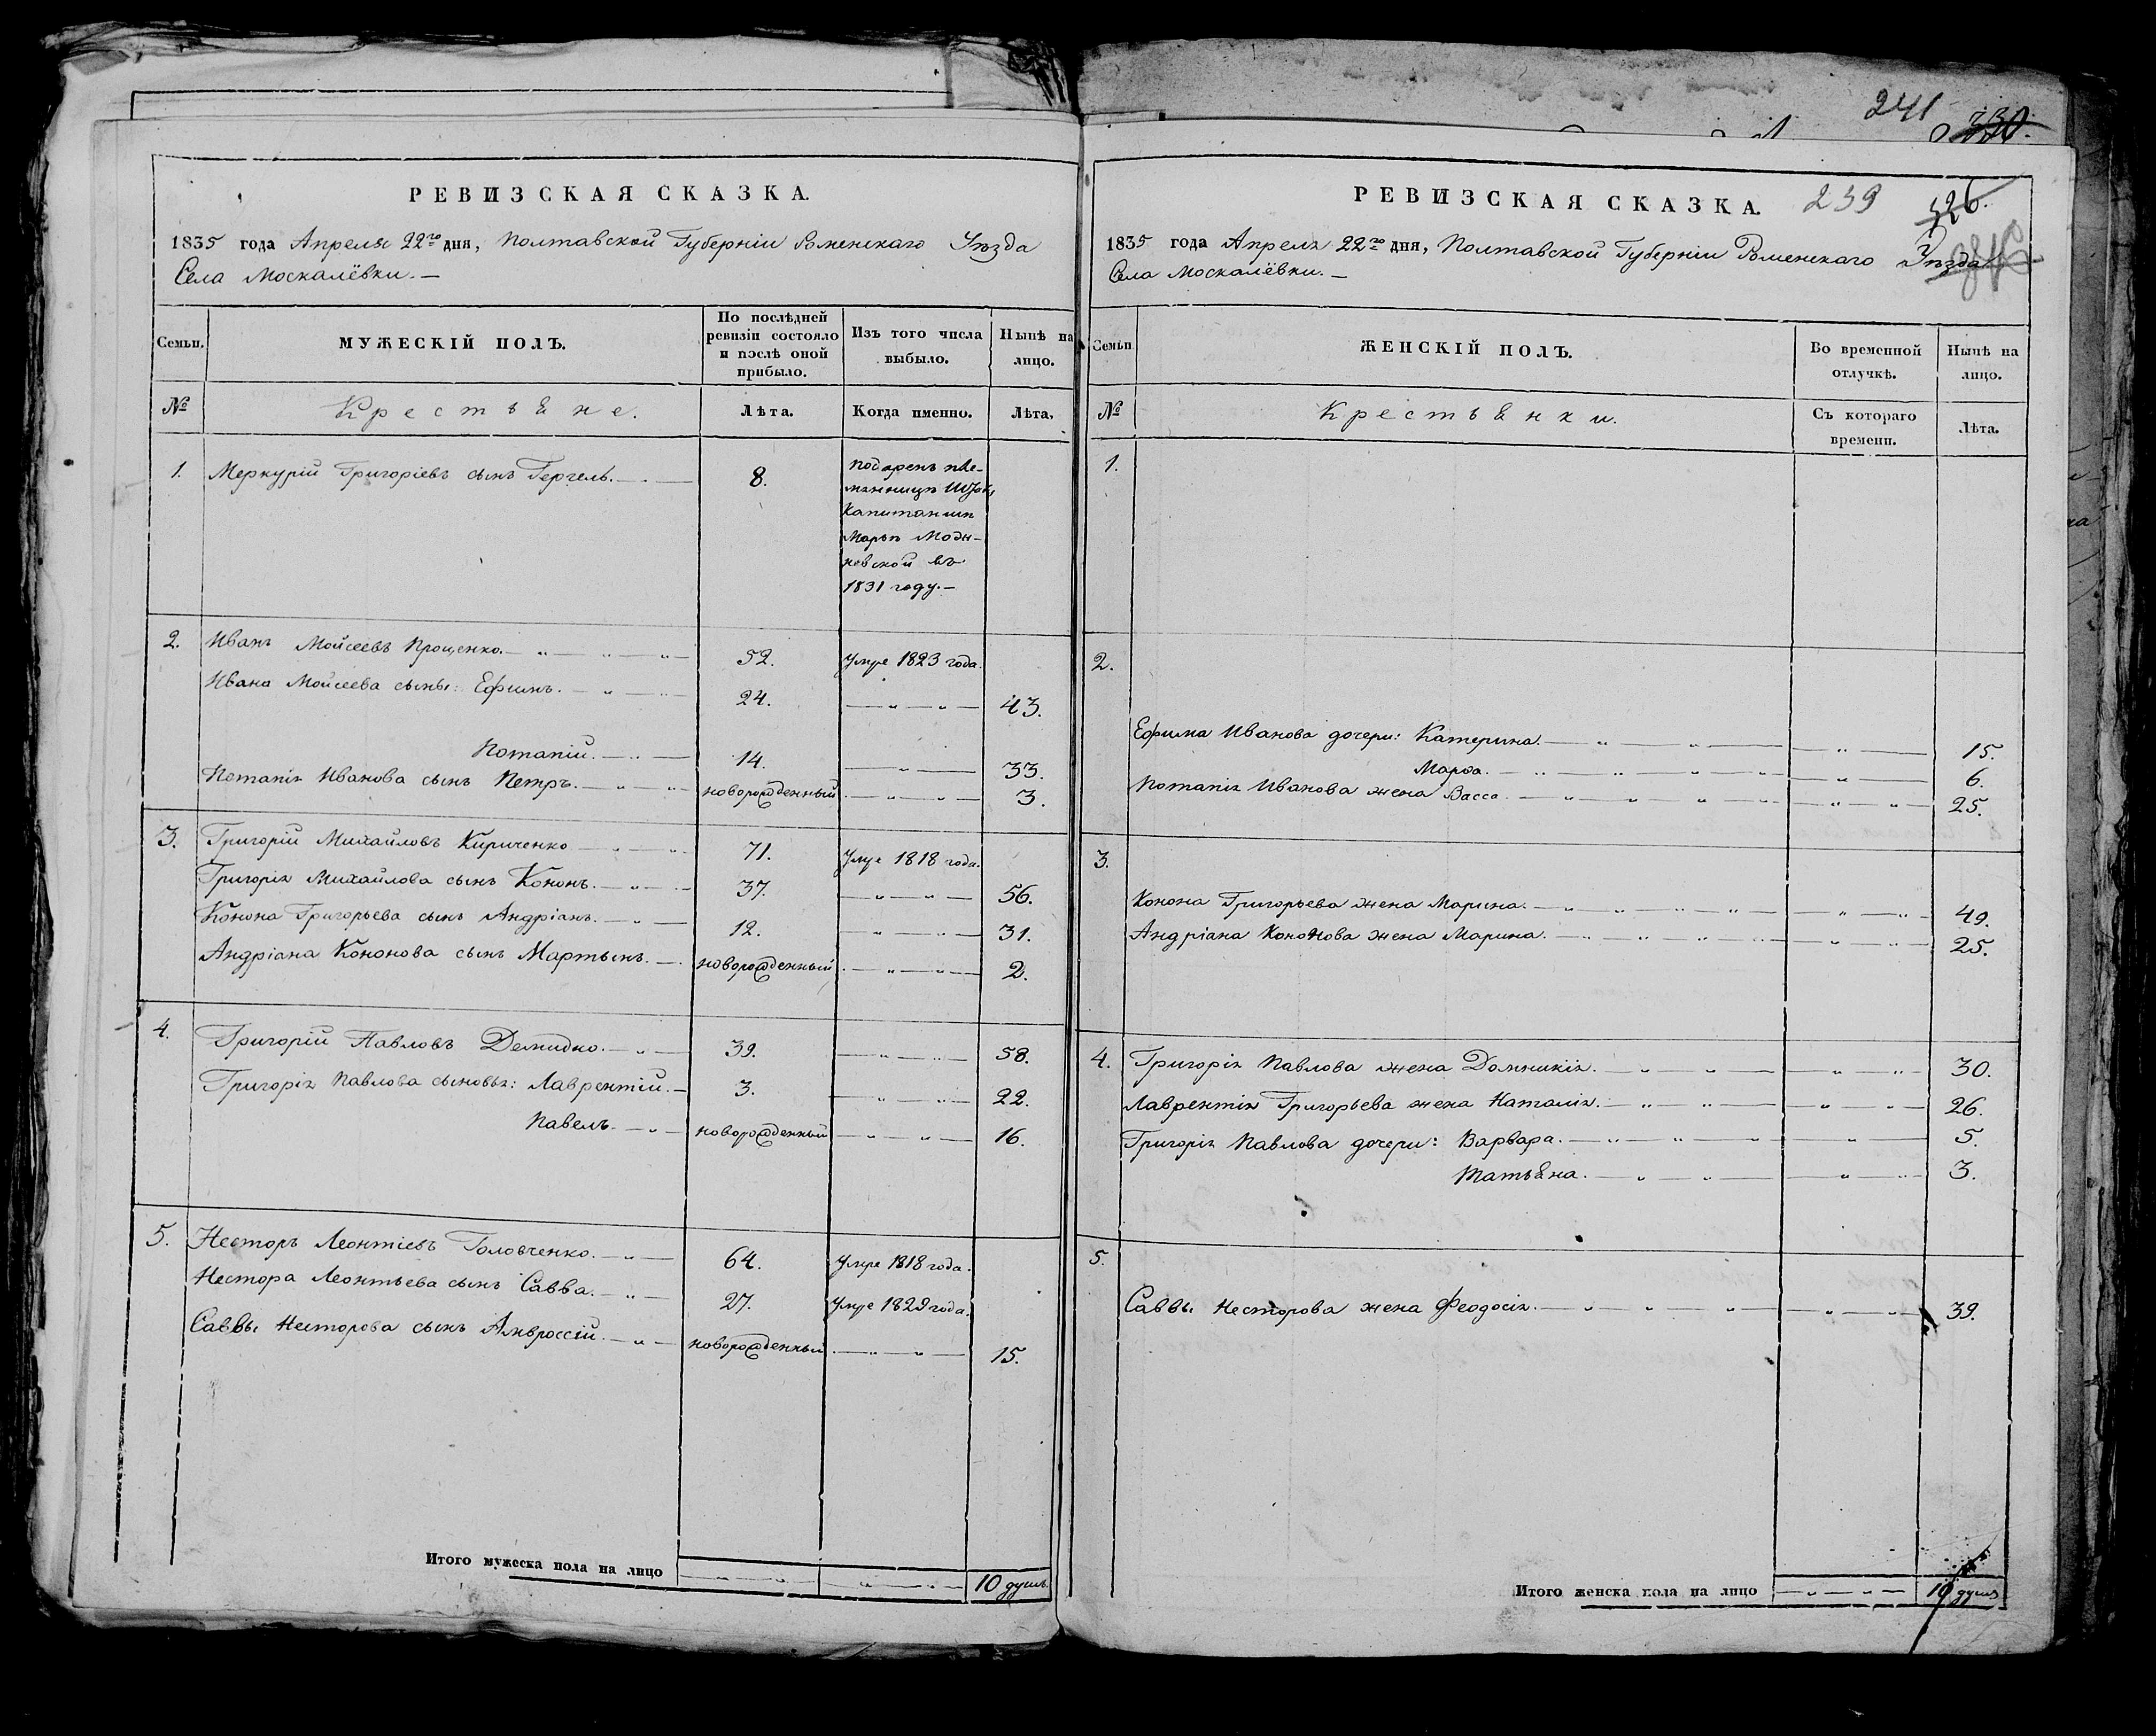 241
РЕВИЗСКАЯ СКАЗКА.
1835 года Апреля 22го дня, Полтавской Губерніи Роменскаго Уѣзда
Села Москалёвки.—
Семьи.
МУЖЕСКІЙ ПОЛЪ.
По послѣдней ревизіи состояло и послѣ оной прибыло.
Изъ того числа выбыло.
Нынѣ на лицо.
№
Крестьяне.
Лѣта.
Когда именно.
Лѣта.
1. Меркурій Григоріевъ сынъ Гергель. 8. подаренъ пле-
мянницѣ Штабс
Капитаншѣ
Марьѣ
невской въ
1831 году.—
2. Иванъ Мойсеевъ Проценко. 52. умре 1823 года.
Ивана Мойсеева сыны: Ефимъ. 24. 43.
Потапій. 14. 33.
Потапія Иванова сынъ Петръ. новорожденный 3.
3. Григорій Михайловъ Кириченко 71. умре 1818 года.
Григорія Михайлова сынъ Кононъ. 37. 56.
Конона Григорьева сынъ Андріанъ. 12. 31.
Андріана Кононова сынъ Мартынъ. новорожденный 2.
4. Григорій Павловъ Демидко. 39. 58.
Григорія Павлова сыновья: Лаврентій. 3. 22.
Павелъ. новорожденный 16.
5. Несторъ Леонтіевъ Головченко. 64. умре 1818 года.
Нестора Леонтьева сынъ Савва. 27. умре 1829 года.
Саввы Несторова сынъ Амвроссій. новорожденный 15.
Итого мужеска пола на лицо 10 душъ.
РЕВИЗСКАЯ СКАЗКА. 239 326.
1835 года Апреля 22го дня, Полтавской Губерніи Роменскаго Уѣзда
Села Москалёвки.—
Семьи
ЖЕНСКІЙ ПОЛЪ.
Во временной отлучкѣ.
Нынѣ на лицо.
№
Крестьянки.
Съ котораго времени.
Лѣта.
1.
2.
Ефима Иванова дочери: Катерина. 15.
Марѳа. 6.
Потапія Иванова жена Васса. 25.
3.
Конона Григорьева жена Марина. 49.
Андріана Кононова жена Марина. 25.
4. Григорія Павлова жена Домникія. 30.
Лаврентія Григорьева жена Наталія. 26.
Григорія Павлова дочери: Варвара. 5.
Татьяна. 3.
5.
Саввы Несторова жена Феодосія. 39.
Итого женска пола на лицо 10 душъ